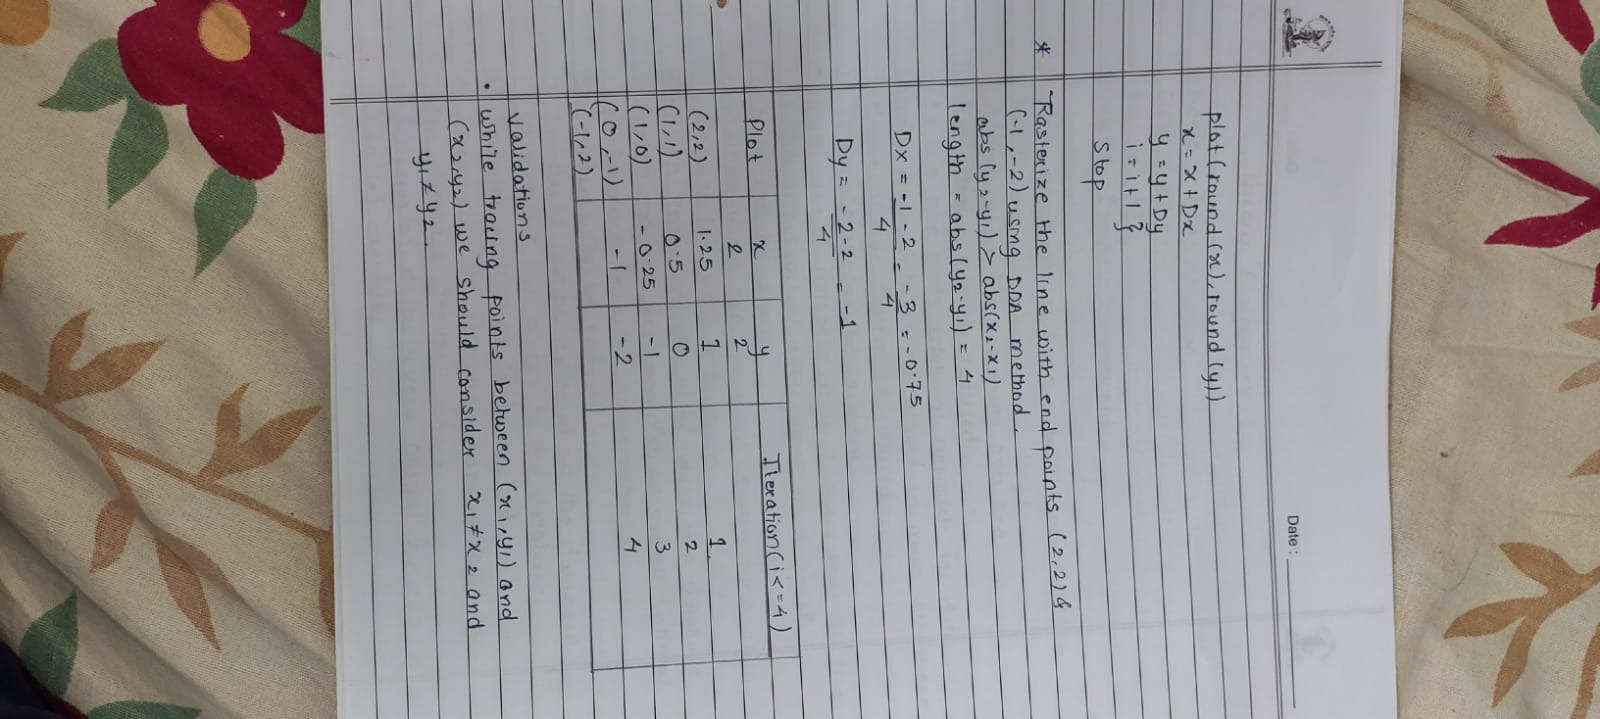 Date :
plot(round(x), round(y))
x = x + Dx
y = y + Dy
i = i + 1 }
Stop
* Rasterize the line with end points (2,2) &
(-1,-2) using DDA method.
abs(y2-y1) > abs(x2-x1)
length = abs(y2-y1) = 4
Dx = -1-2/4 = -3/4 = -0.75
Dy = -2-2/4 = -1
Plot x y Iteration(i<=4)
2 2
(2,2) 1.25 1 1
(1,1) 0.5 0 2
(1,0) -0.25 -1 3
(0,-1) -1 -2 4
(-1,2)
Validations
• while tracing points between (x1,y1) and
(x2,y2) we should consider x1≠x2 and
y1≠y2.